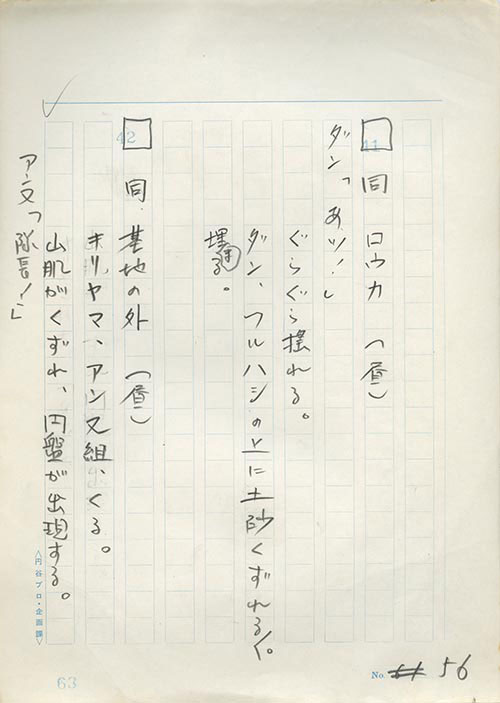 41
同 ロウカ (昼)
ダン「あッ!」
ぐらぐら揺れる。
ダン、フルハシの上に土砂くずれる。
埋まる。
42
同・基地の外 (昼)
キリヤマ、アンヌ組、くる。
山肌がくずれ、円盤が出現する。
アンヌ「隊長!」
〈円谷プロ・企画課〉
63
No. 56